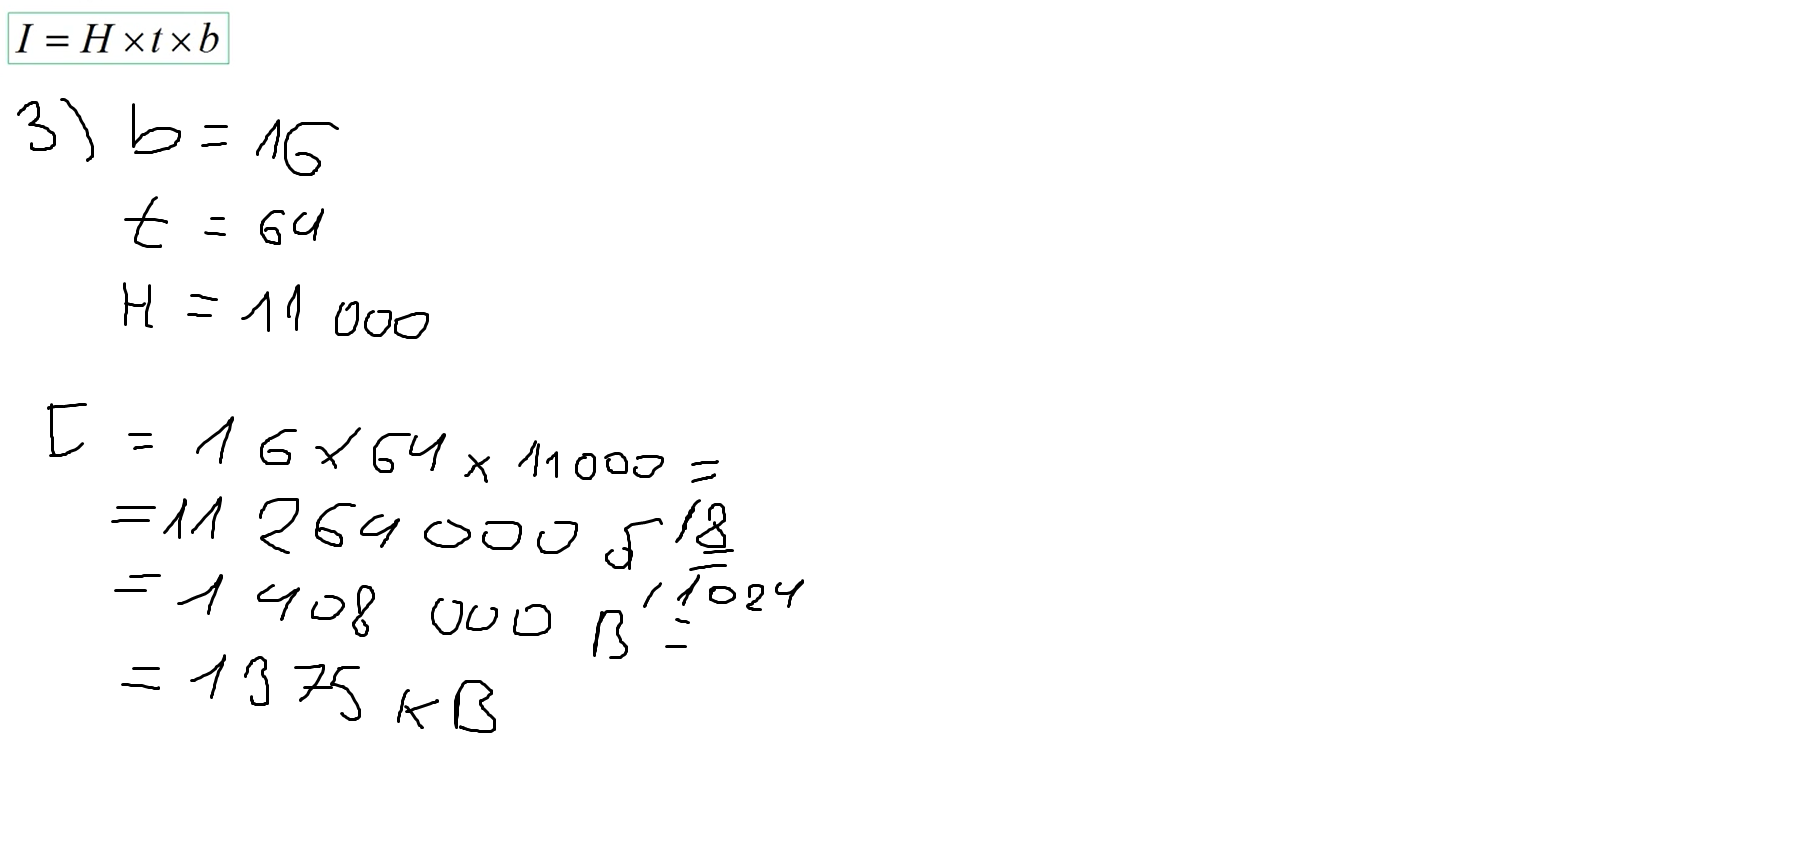 I = H × t × b
3) b = 16
t = 64
H = 11 000
I = 16 × 64 × 11000 =
= 11 264 000 б /8
= 1 408 000 B /1024 =
= 1375 кB